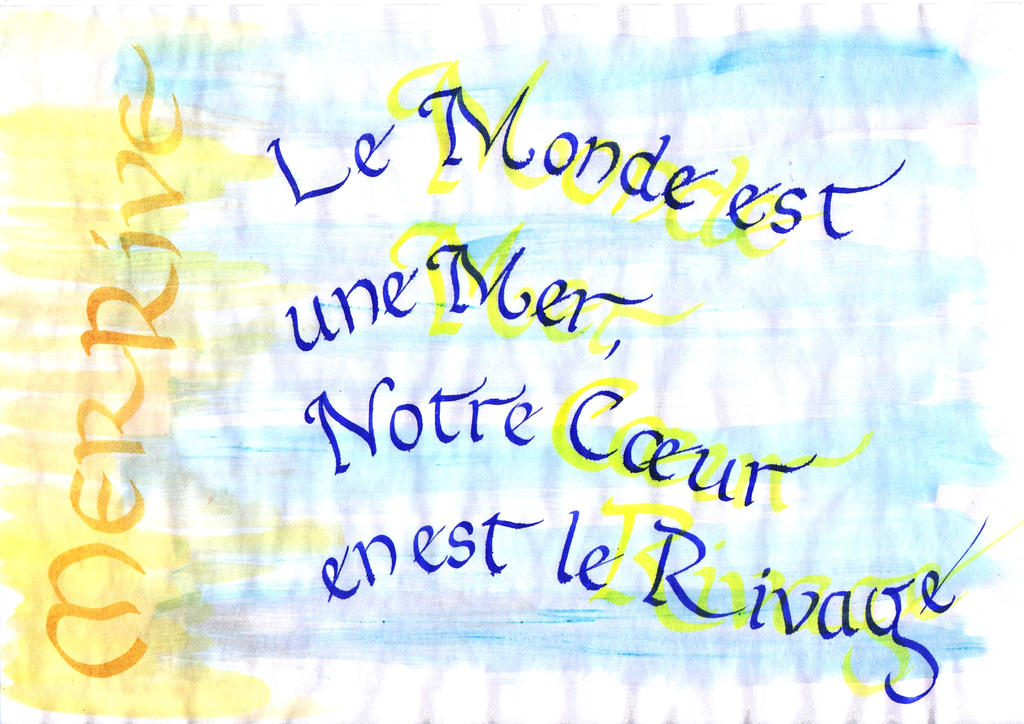 MerRive
Le Monde est
une Mer,
Notre Cœur
en est le Rivage